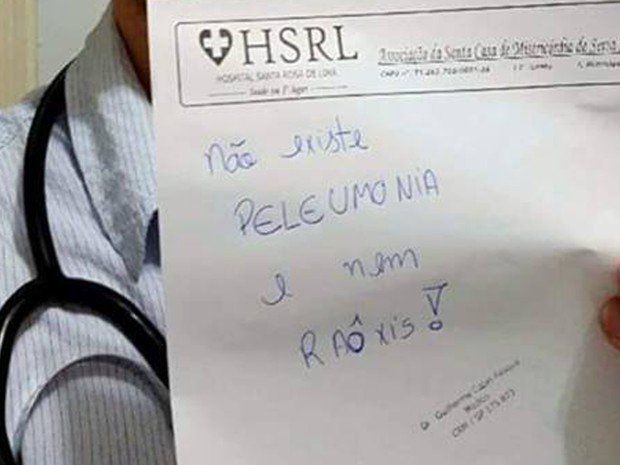 HSRL
HOSPITAL SANTA ROSA DE LIMA
Saúde em 1º lugar
Associação da Santa Casa de Misericórdia de Serra
não existe
PELEUMONIA
e nem
RAÔXIS!
Dr. Guilherme Capel
Médico
CRM